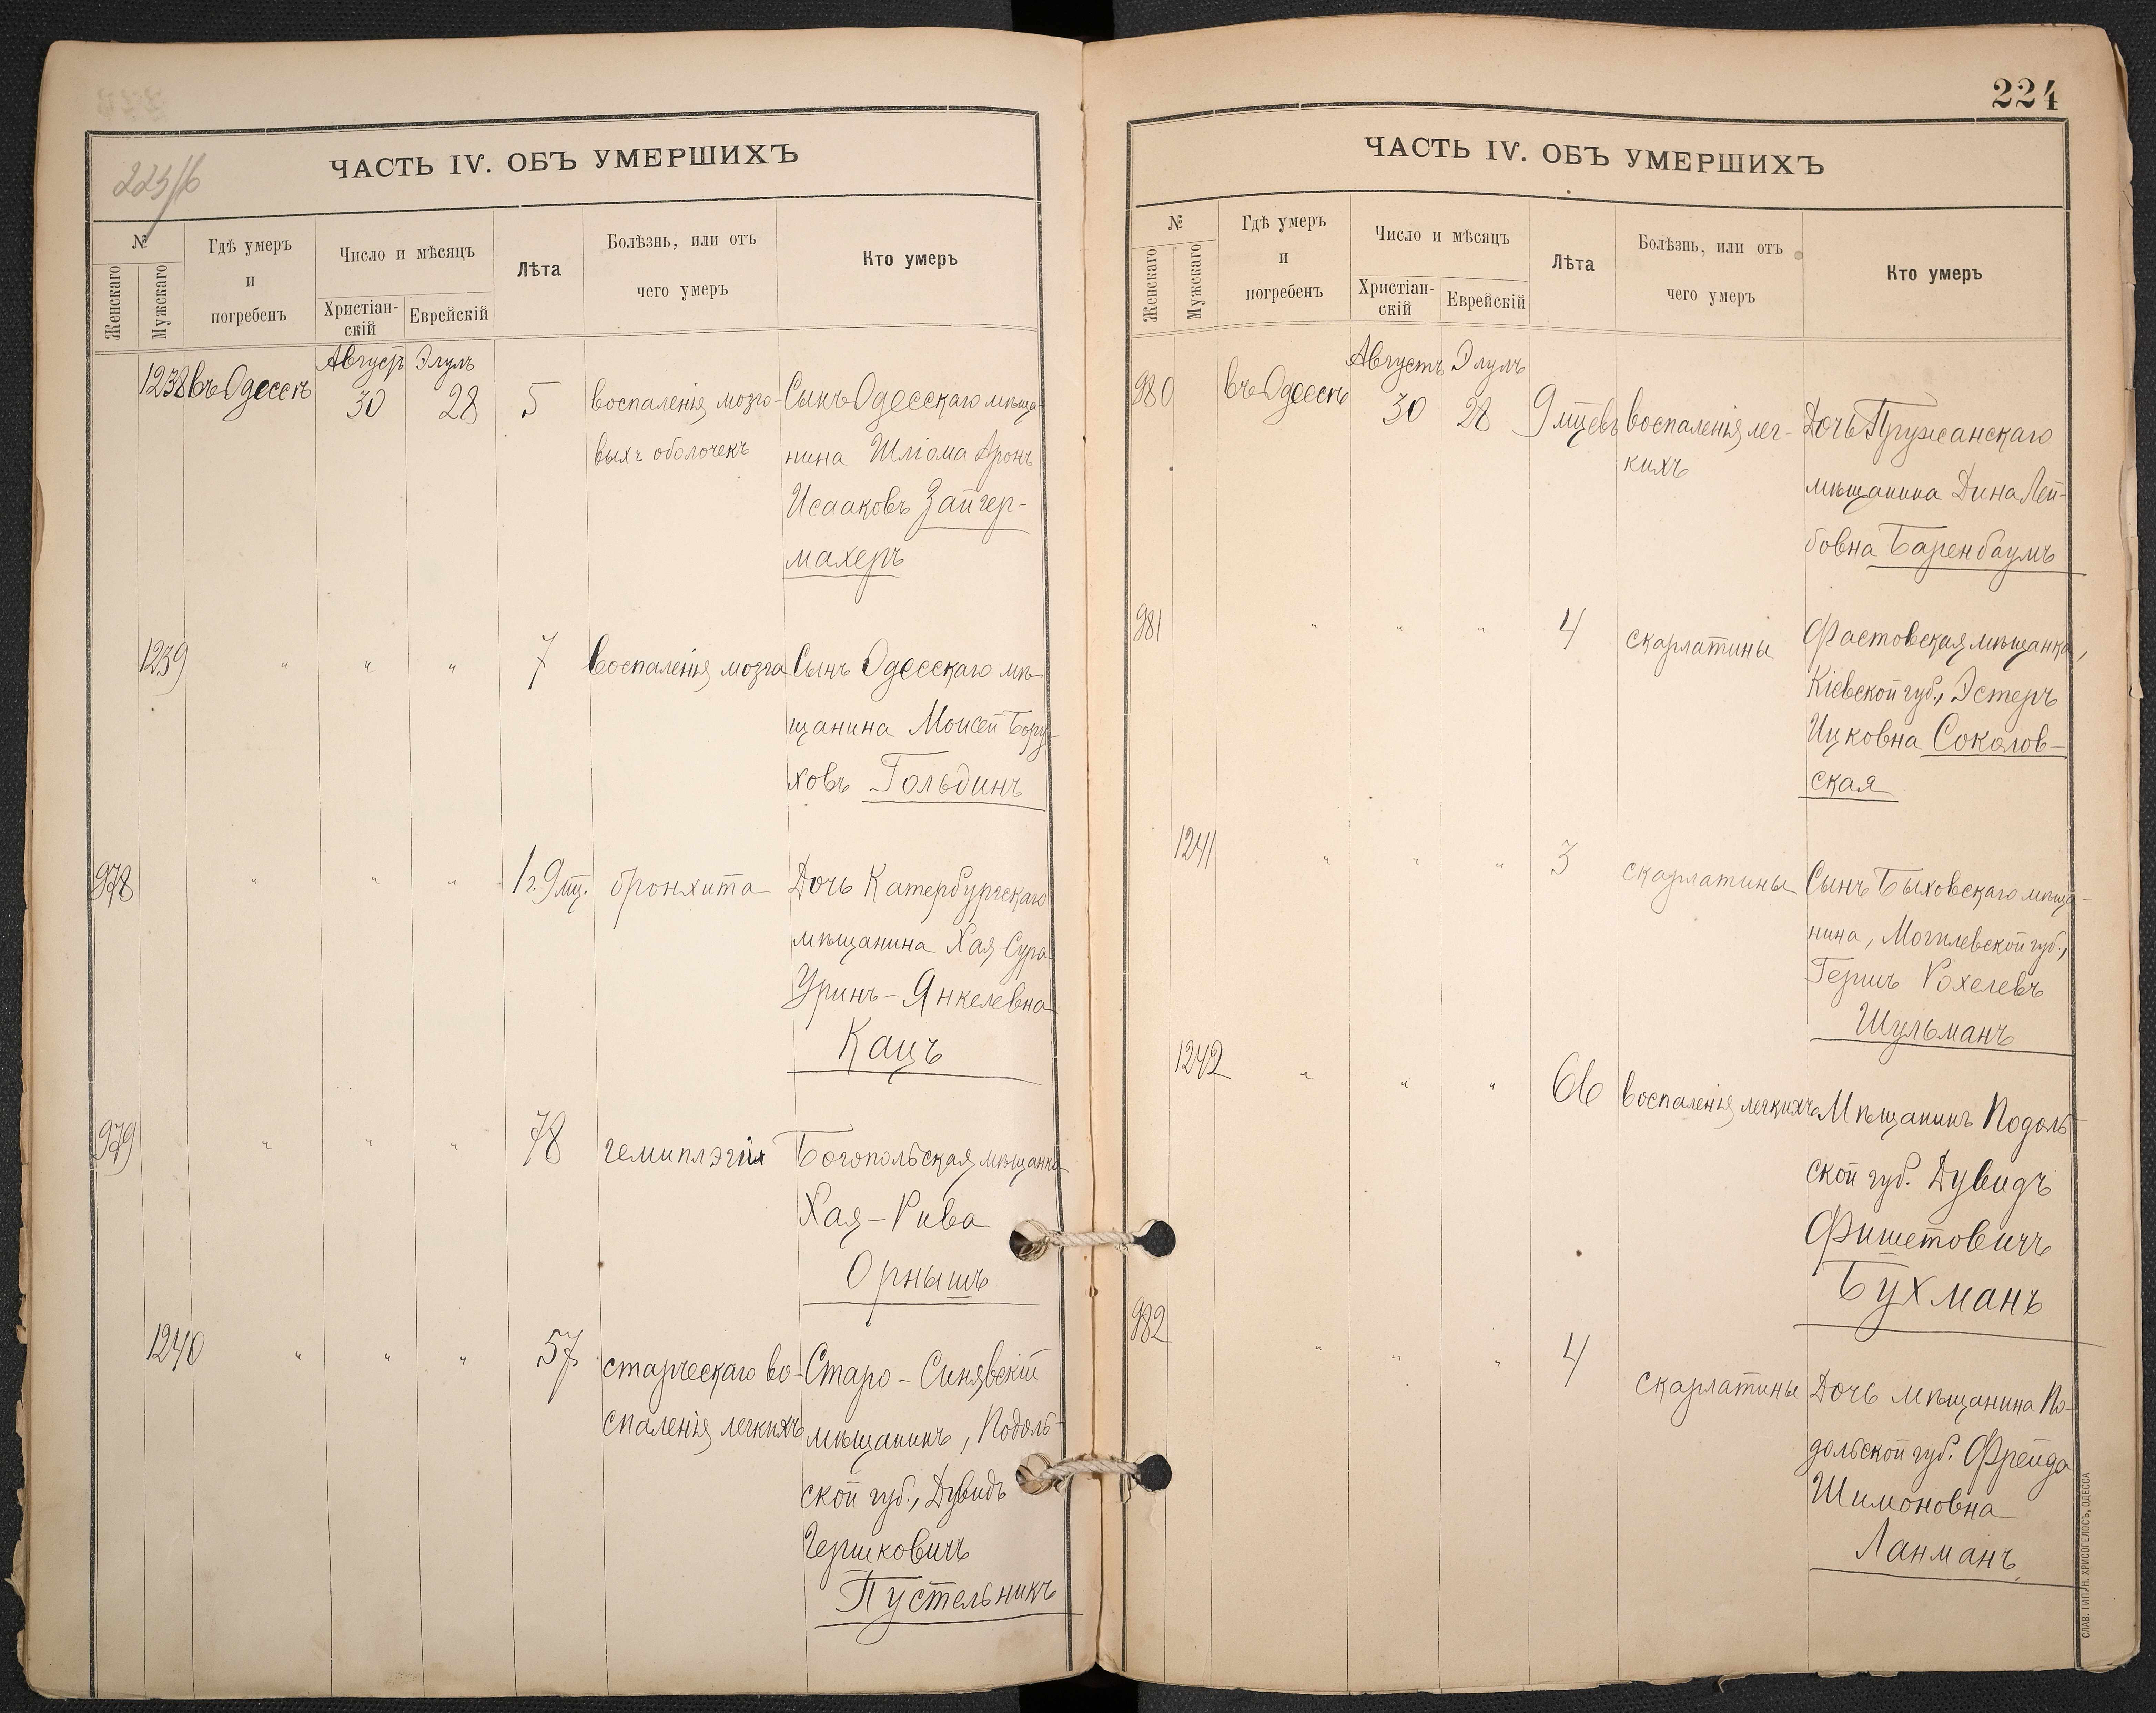 223/б
ЧАСТЬ IV. ОБЪ УМЕРШИХЪ
№
Женскаго
Мужскаго
Гдѣ умеръ
и
погребенъ
Число и мѣсяцъ
Христіан-
скій
Еврейскій
Лѣта
Болѣзнь, или отъ
чего умеръ
Кто умеръ
Августъ Элулъ
1238 въ Одессѣ 30 28 5 воспаленія мозго- Сынъ Одесскаго мѣща-
выхъ оболочекъ нина Шліома Аронъ
Исааковъ Зайгер-
махеръ
1239 " " " 7 воспаленія мозга Сынъ Одесскаго мѣ-
щанина Моисей Бору-
ховъ Гольдинъ
978 " " " 1 г. 9 мц. бронхита Дочь Катербургскаго
мѣщанина Хая Сура
Уринъ-Янкелевна
Кацъ
979 " " " 78 гемиплэгіи Богопольская мѣщанка
Хая-Рива
Орнышъ
1240 " " " 57 старческаго во- Старо-Синявскій
спаленія легкихъ мѣщанинъ, Подоль-
ской губ., Дувидъ
Гершковичъ
Пустельникъ
224
ЧАСТЬ IV. ОБЪ УМЕРШИХЪ
№
Женскаго
Мужскаго
Гдѣ умеръ
и
погребенъ
Число и мѣсяцъ
Христіан-
скій
Еврейскій
Лѣта
Болѣзнь, или отъ
чего умеръ
Кто умеръ
Августъ Элулъ
980 въ Одессѣ 30 28 9 мцевъ воспаленія лег- Дочь Пружанскаго
кихъ мѣщанина Дина Лей-
бовна Баренбаумъ
981 " " " 4 скарлатины Фастовская мѣщанка,
Кіевской губ., Эстеръ
Ицковна Соколов-
ская
1241 " " " 3 скарлатины Сынъ Быховскаго мѣща-
нина, Могилевской губ.,
Гершъ Рохелевъ
Шульманъ
1242 " " " 66 воспаленія легкихъ Мѣщанинъ Подоль-
ской губ. Дувидъ
Фишетовичъ
Бухманъ
982 " " " 4 скарлатины Дочь мѣщанина По-
дольской губ. Фрейда
Шимоновна
Ланманъ.
СЛАВ. ТИП. Н. ХРИСОГЕЛОСЪ, ОДЕССА